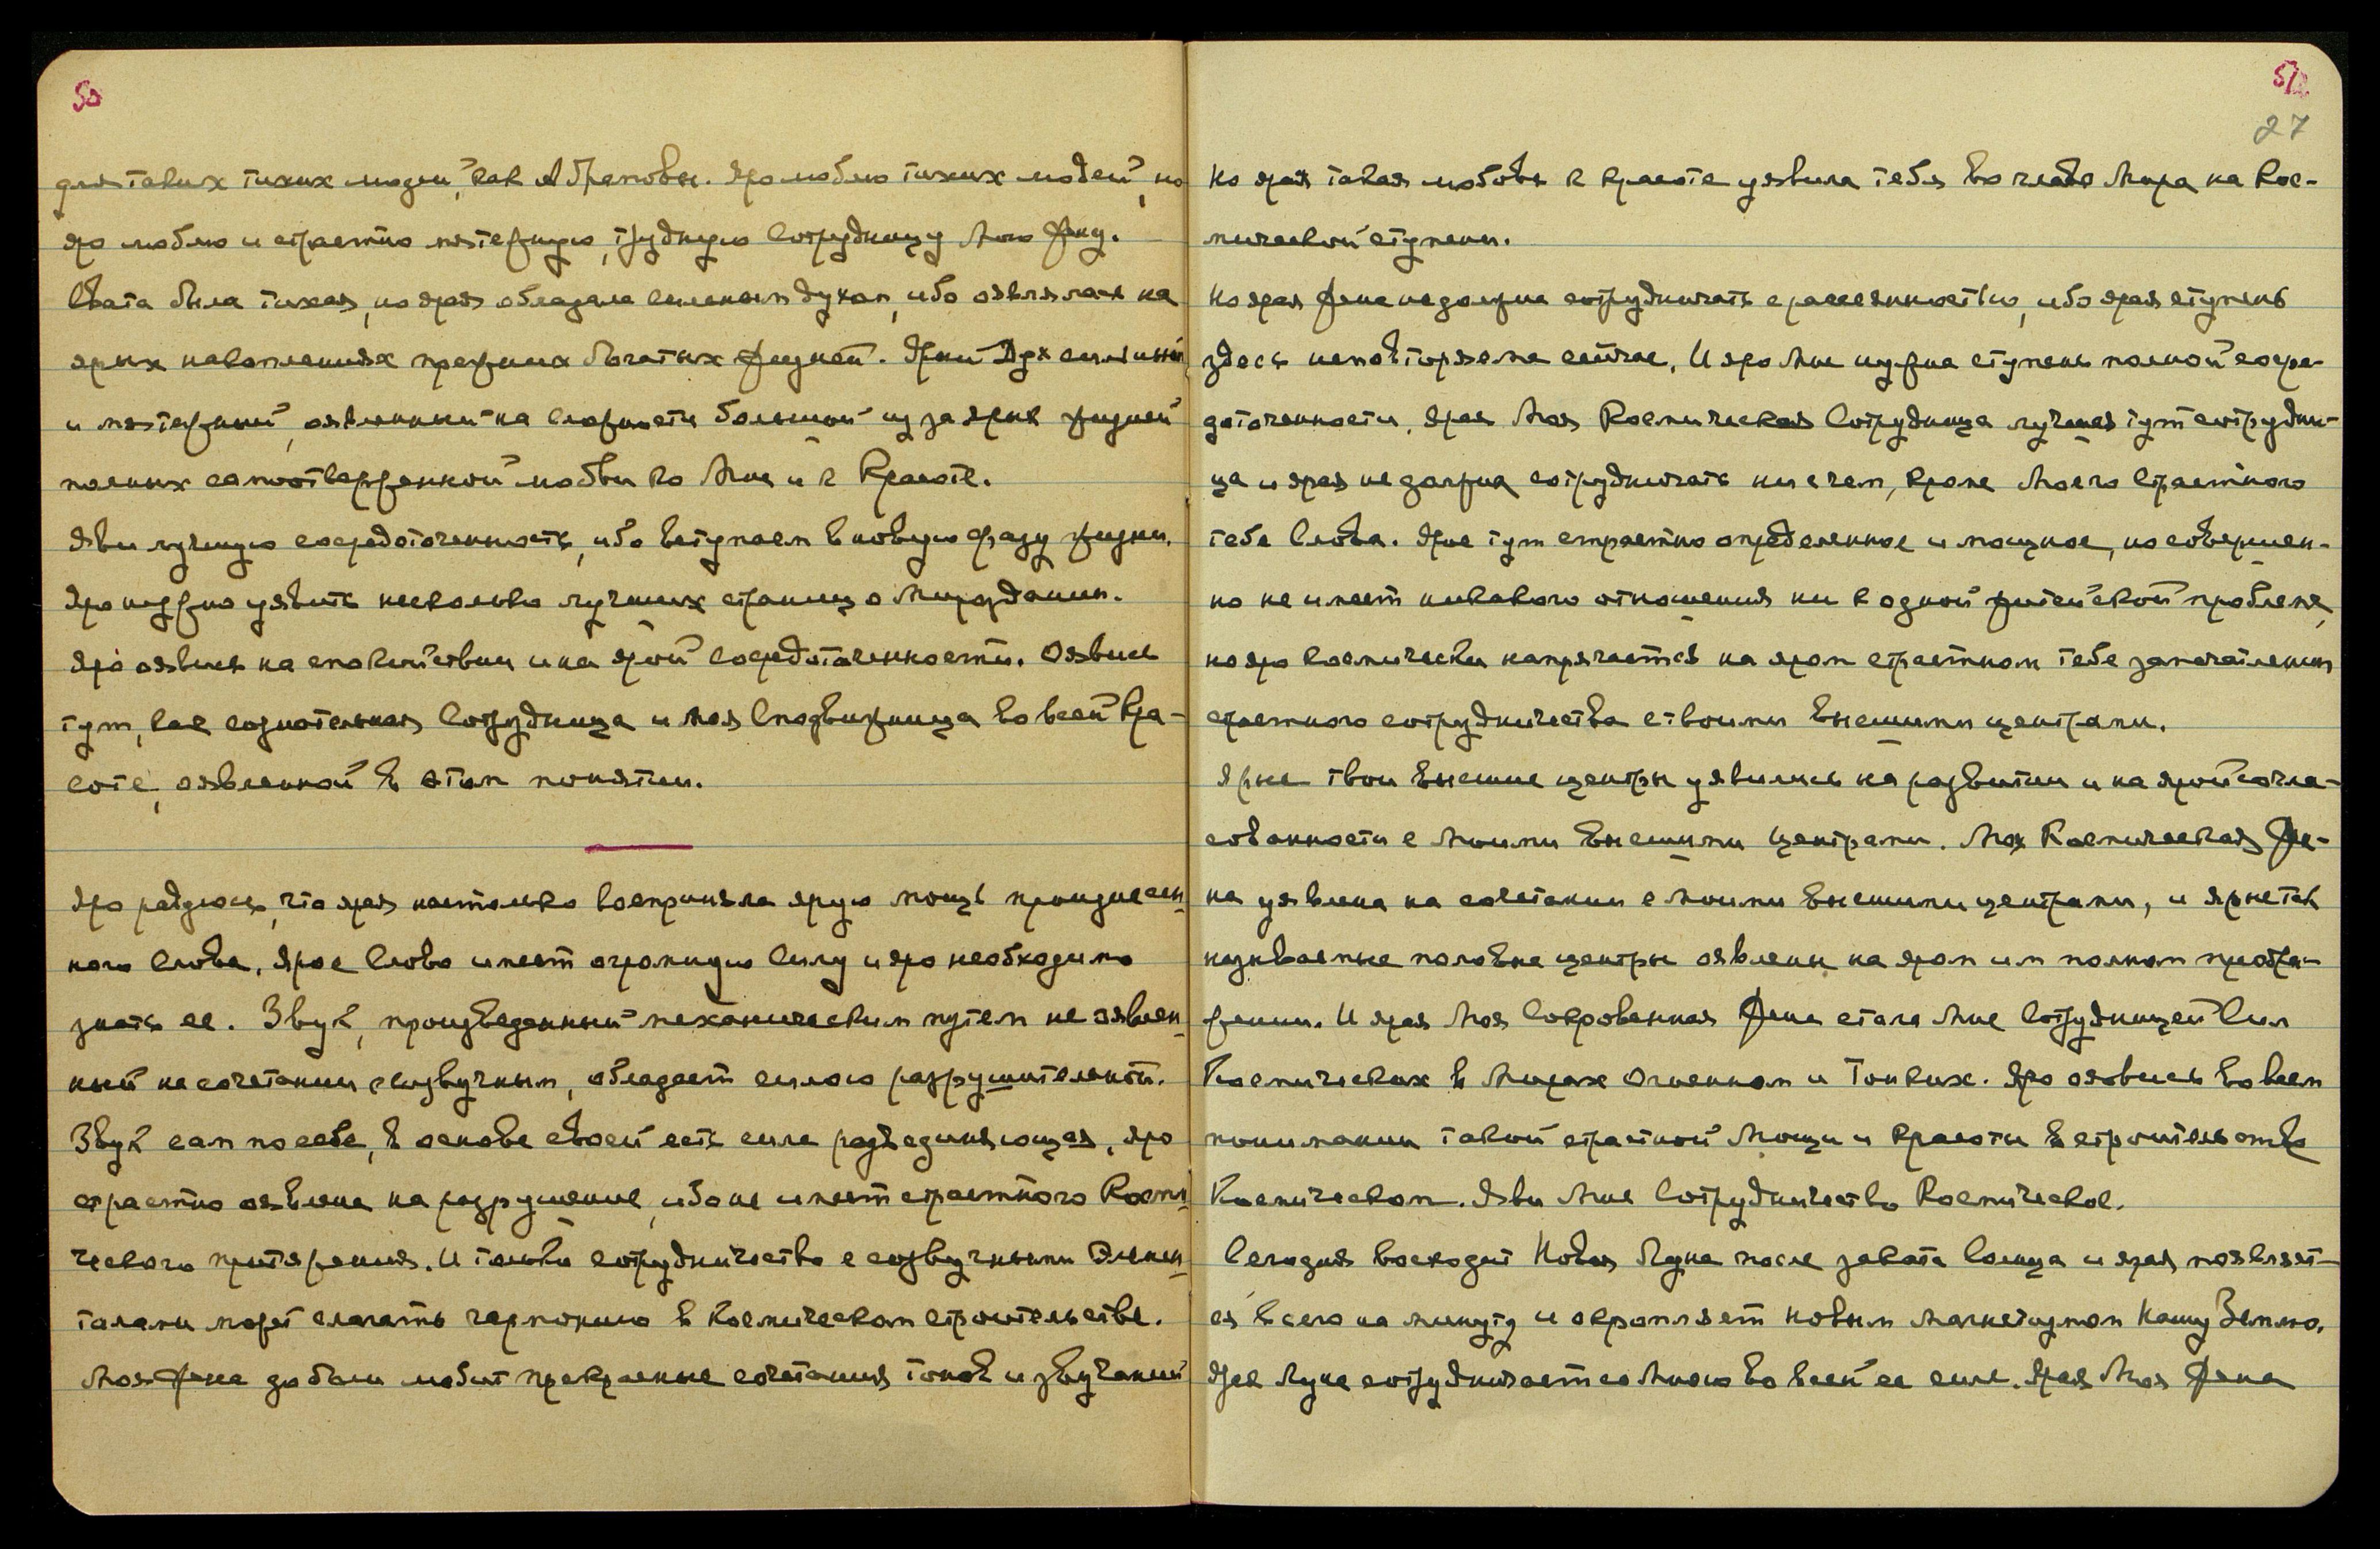 50
для таких тихих людей, как Абрамовы. Яро люблю тихих людей, но
яро люблю и страстно мятежную, трудную Сотрудницу Мою Жену.
Свата была тихая, но ярая обладала сильным духом, ибо оявлялась на
ярых накоплениях прежних богатых жизней. Ярый Дух сильный
и мятежный, оявленный на сложности большой из за ярых жизней
полных самоотверженной любви ко Мне и к Красоте.
Яви лучшую сосредоточенность, ибо вступаем в новую фазу жизни.
Яро нужно уявить несколько лучших страниц о Мироздании.
Яро оявись на спокойствии и на ярой сосредоточенности. Оявись
тут, как сознательная Сотрудница и Моя Сподвижница во всей Кра-
соте, оявленной в этом понятии.
Яро радуюсь, что ярая настолько восприняла ярую мощь произнесен-
ного Слова. Ярое Слово имеет огромную Силу и яро необходимо
знать ее. Звук, произведенный механическим путем не оявлен-
ный на сочетании созвучным, обладает силою разрушительной.
Звук сам по себе, в основе своей есть сила разъединяющая, яро
страстно оявлена на разрушение, ибо не имеет страстного Косми-
ческого притяжения. И только сотрудничество с созвучными Элемен-
талами может слагать гармонию в Космическом строительстве.
Моя Жена до боли любит прекрасные сочетания тонов и звучаний
51
27
Но ярая такая любовь к красоте уявила тебя во главе Мира на Кос-
мической ступени.
Но ярая Жена не должна сотрудничать с рассеянностью, ибо ярая ступень
здесь неповторяема сейчас. И яро Мне нужна ступень полной сосре-
доточенности. Ярая Моя Космическая Сотрудница лучшая тут сотрудни-
ца и ярая не должна сотрудничать ни с чем, кроме Моего страстного
тебе Слова. Ярое тут страстно определенное и мощное, но совершен-
но не имеет никакого отношения ни к одной житейской проблеме,
но яро космически напрягается на яром страстном тебе запечатлении
страстного сотрудничества с твоими высшими центрами.
Ярые твои высшие центры уявились на развитии и на ярой согла-
сованности с Моими высшими центрами. Моя Космическая Же-
на уявлена на сочетании с Моими высшими центрами, и ярые так
называемые половые центры оявлены на яром им полном преобра-
жении. И ярая Моя Сокровенная Жена стала Мне Сотрудницей Сил
Космических в Мирах Огненном и Тонких. Яро оявись во всем
понимании такой страстной Мощи и красоты в строительстве
Космическом. Яви Мне Сотрудничество Космическое.
Сегодня восходит Новая Луна после заката Солнца и ярая появляет-
ся всего на минуту и окропляет новым магнетизмом Нашу Землю.
Ярая Луна сотрудничает со Мною во всей ее силе. Ярая Моя Жена